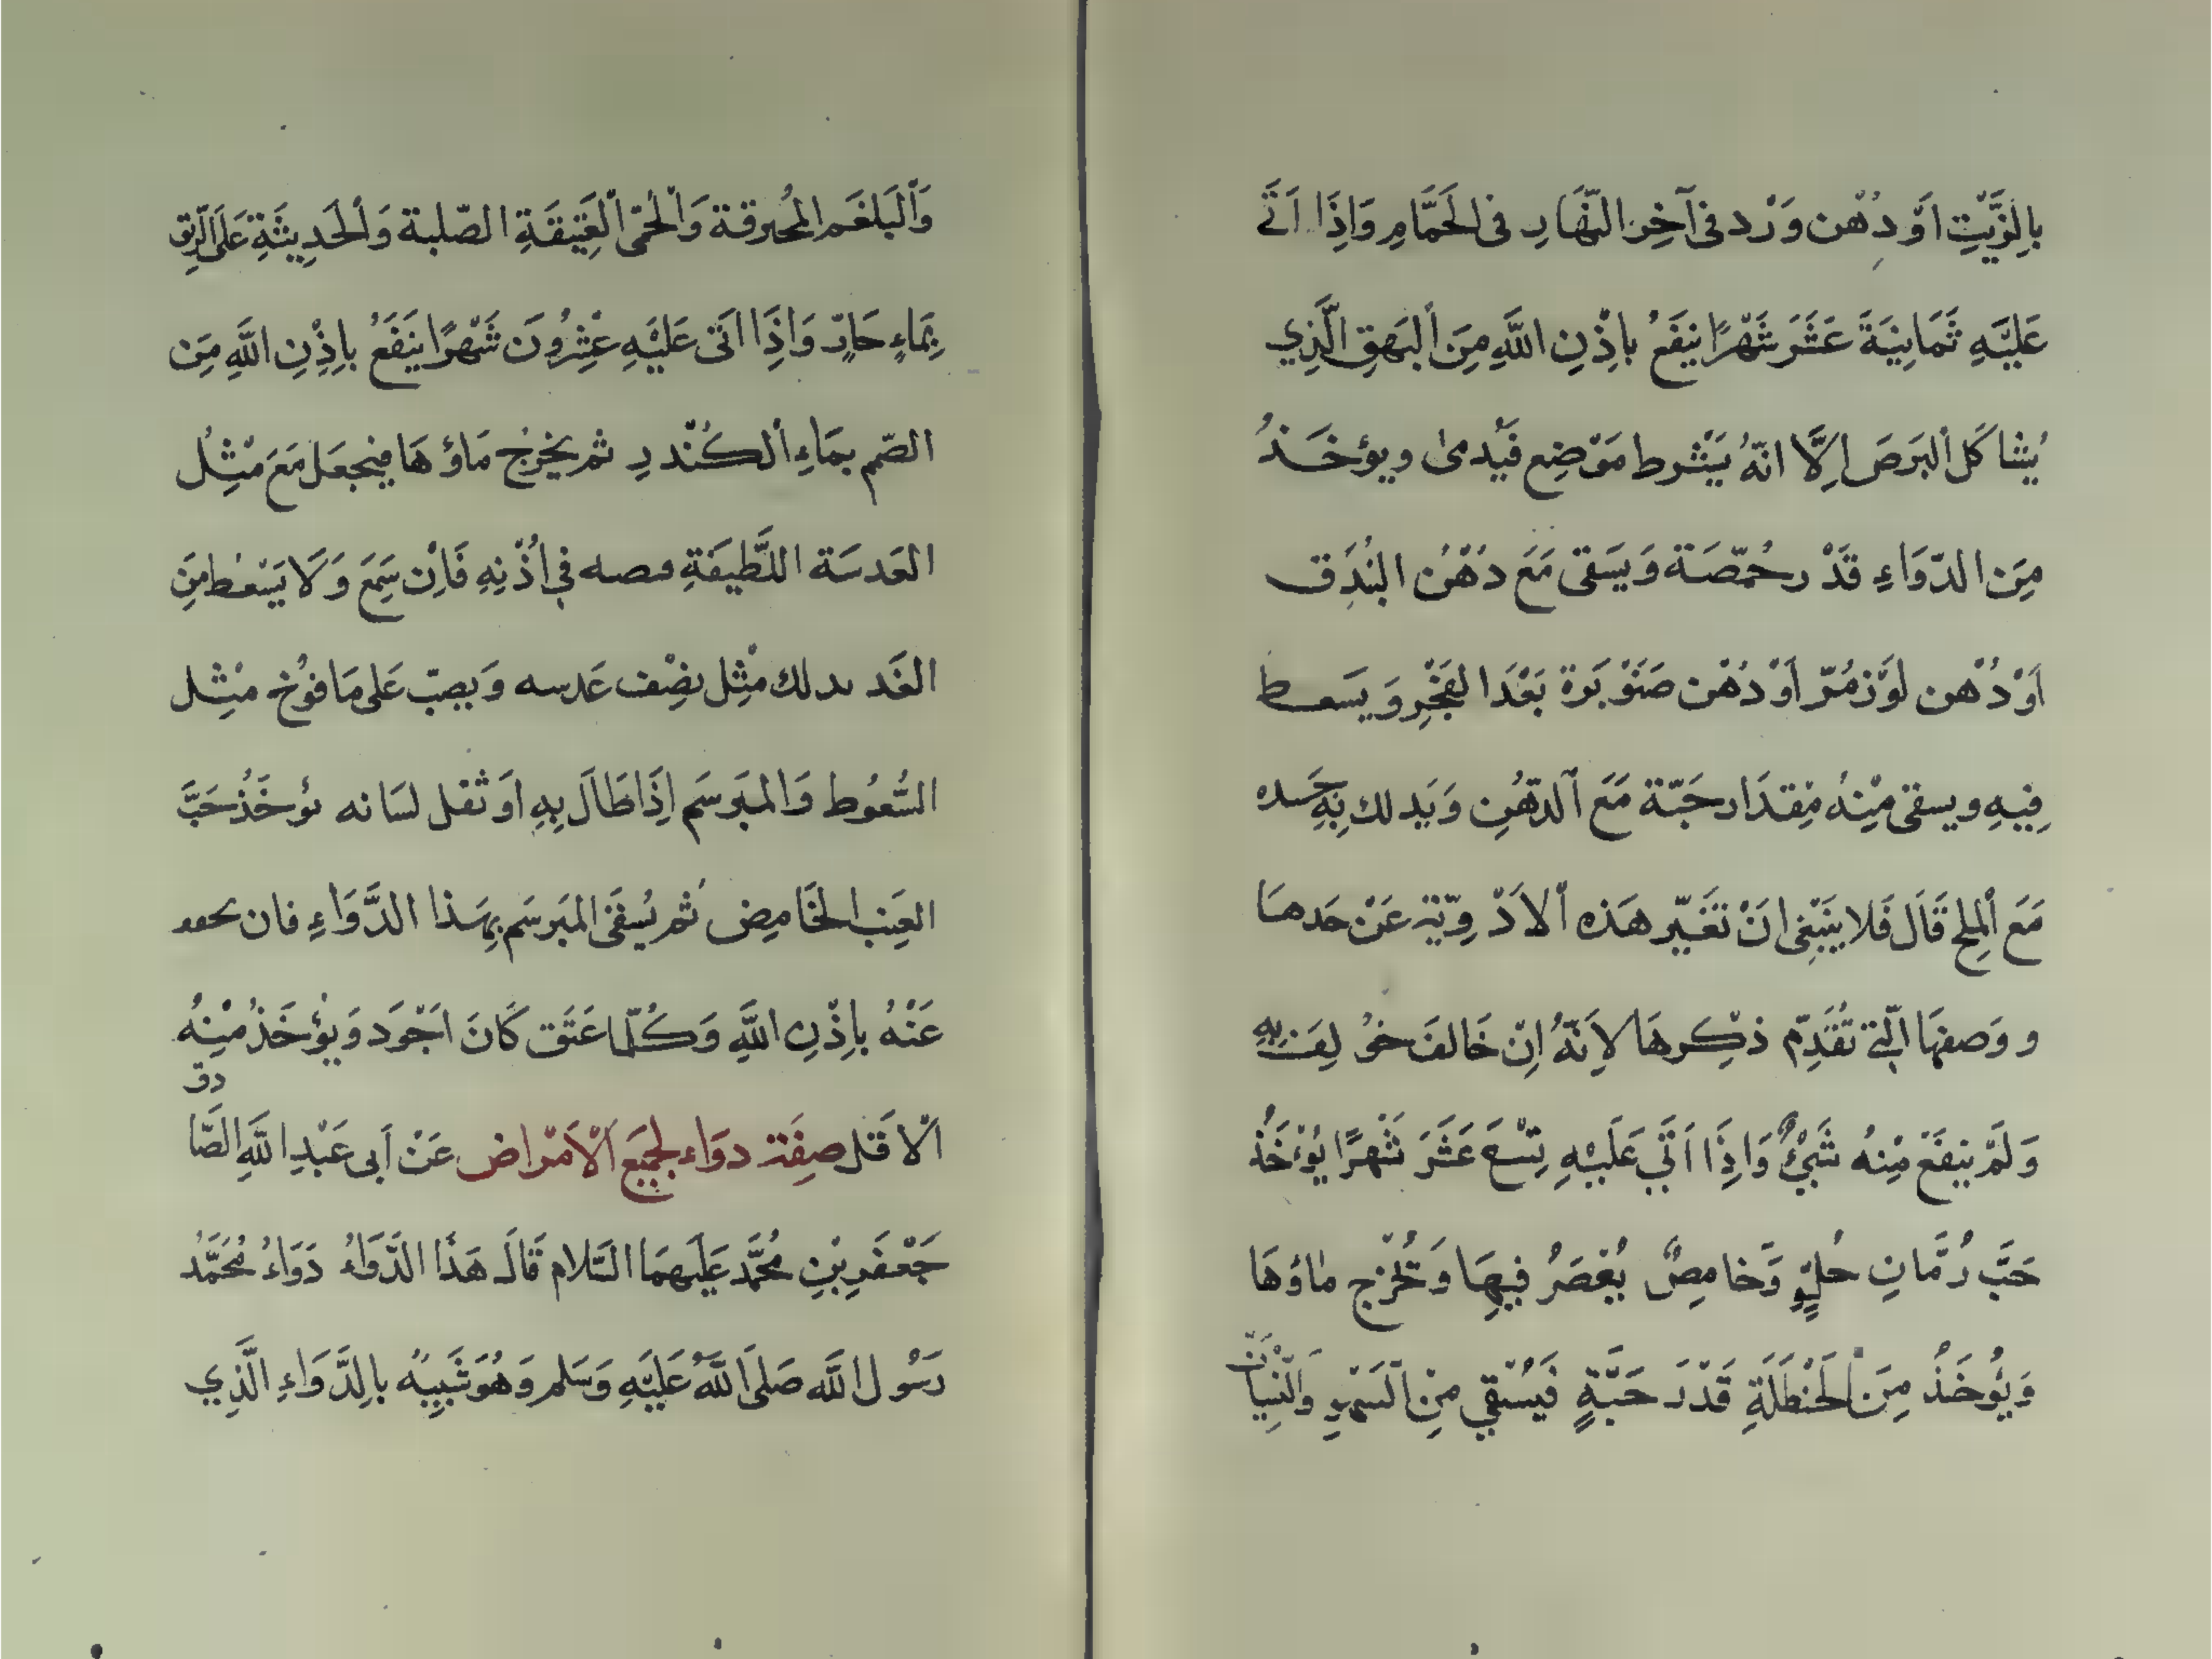 بِالزَّيْتِ اَوْ دُهْن وَرْد فى آخِر النَّهَارِ فى الحَمَّامِ وَاِذَا اَتَى
عَلَيْهِ ثَمَانِيَةَ عَشَرَ شَهْرًا ينفَعُ بِاِذْنِ اللَّهِ مِنَ البَهَقِ الَّذِي
يُشاكَل البَرَصَ اِلَّا انّهُ يَشْرط مَوْضِع فَيُدمىٰ ويؤخَذُ
مِنَ الدّوَاءِ قَدْر حُمّصَة وَيَسَقى مَعَ دُهْن البُندَق
اَوْ دُهْن لَوْز مُرّ اَوْ دُهْن صَنَوْبَرة بَعْدَ الفَجْرِ وَيسَعط
فِيهِ ويسقى مِنْهُ مِقدَار حَبّة مَعَ الدّهُنِ وَيَدلك بِهِ جَسَده
مَعَ المِلحِ قَالَ فَلا ينَبْغى انَ تَغَيّر هَذه الاَدْوِيّة عَنْ حَدهَا
ووَصفهَا الّتى تَقَدِّمَ ذكِرهَا لاِنّهُ اِنّ خَالفَ خوُلِفَ بِهِ
وَلَمْ ينفَعَ مِنْهُ شَيْءٌ وَاِذَا اَتَى عَلَيْهِ تِسْعَ عَشَرَ شَهْرًا يُؤْخَذُ
حَبَّ رُمَّانِ حُلْوٍ وَخامِضٌ يُعْصَرُ فيِهَا وَتُخْرَج مٰاؤهَا
وَيُؤخَذُ مِنَ الحَنْظَلَةِ قَدْرَ حَبَّةٍ فَيُسْقى مِنَ السَّهْوِ وَالنِّسْيَانْ
وَالبَلغَم المحُرقة وَالحُمّى العَتِيقَةِ الصّلبة وَالحَدِيثَةِ عَلَى الرِّيقِ
بِمَاءٍ حَارٍّ وَاِذَا اتَى عَلَيْهِ عِشْرُونَ شَهْرًا يَنَفَعُ بِاِذْنِ اللَّهِ مِنَ
الصّم بمَاءِ الكُنْدرِ ثم يخرُج مَاؤهَا فيجعَل مَعَ مْثِل
العَدسَة اللَّطيفَةِ فيصه في اُذْنِهِ فَاِن سَمِعَ وَلَا يَسْعُط مِنَ
الغَد بدلك مْثِل نِصْف عَدسه وَيصبّ عَلى مَا فوُخ مثِل
السُّعُوط وَالمبَرسَم اِذَا طَالَ بِهِ اوَ ثقل لسَانه يؤخَذُ حَبَّ
العِنَب الخَامِض ثم يُسقَى المبَرسَم بِهَذا الدَّوَاءِ فان يحفف
عَنْهُ بِاِذْنِ اللَّهِ وَكُلّما عَتَق كَانَ اَجْوَد وَيؤْخَذُ مِنْهُ
الاَقَل صِفَة دوَاء لجَمَيعِ الاَمْراض عَنْ اَبى عَبْدِ اللَّهِ الصَّادق
جَعْفَرِ بْنِ مُحَمَّد عَلَيهمَا السّلام قَالَ هَذَا الدَّوَاءُ دَوَاءُ مُحَمَّدُ
رَسُول اللَّه صَلىَ اللَّهُ عَلَيْهِ وَسَلم وَهُوَ شَبِيهٌ بالِدَّوَاءِ الَّذِي